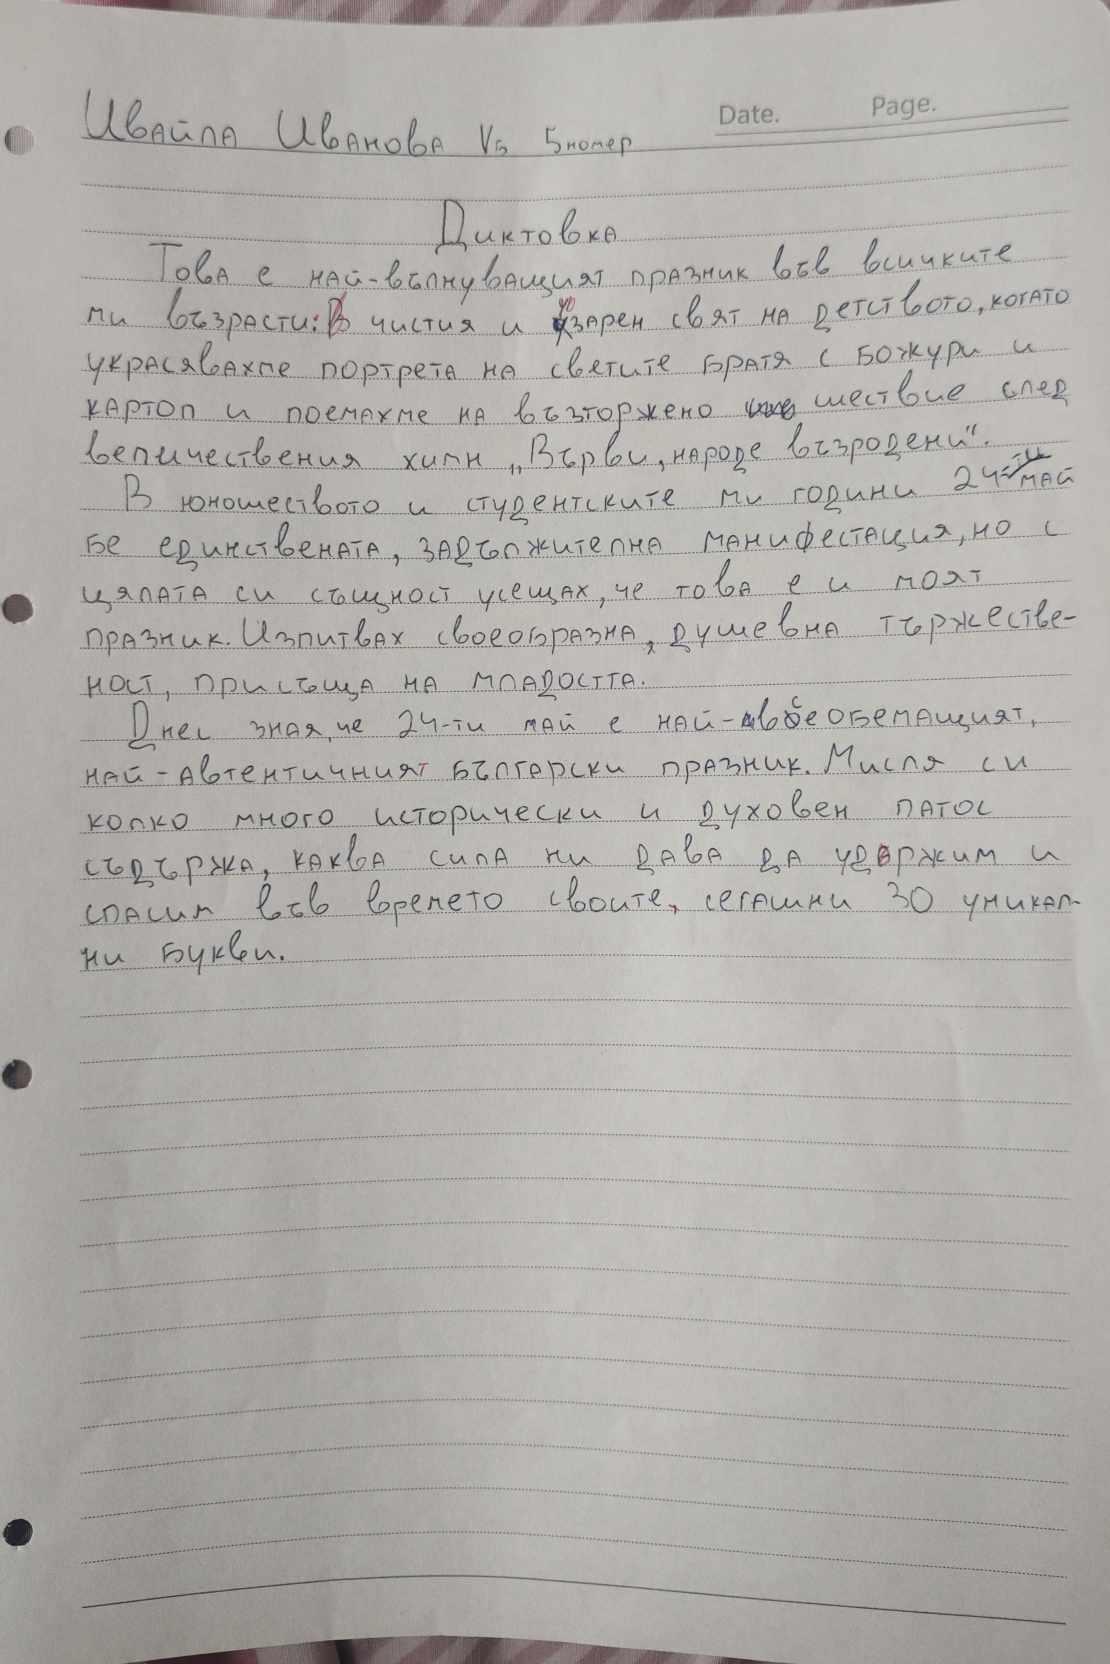 Date. Page.
Ивайла Иванова Vв 5номер
Диктовка
Това е най-вълнуващият празник във всичките
ми възрасти: В чистия и озарен свят на детството, когато
украсявахме портрета на светите братя с божури и
картоп и поемахме на възторжено шествие след
величествения химн „Върви, народе възродени“.
В юношеството и студентските ми години 24-ти май
бе единствената, задължителна манифестация, но с
цялата си същност усещах, че това е и моят
празник. Изпитвах своеобразна, душевна тържестве-
ност, присъща на младостта.
Днес зная, че 24-ти май е най-всеобемащият,
най-автентичният български празник. Мисля си
колко много исторически и духовен патос
съдържа, каква сила ни дава да удържим и
спасим във времето своите, сегашни 30 уникал-
ни букви.